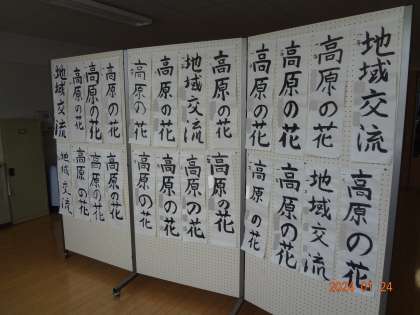 地域交流
高原の花
高原の花
高原の花
高原の花
高原の花
地域交流
高原の花
高原の花
高原の花
高原の花
地域交流
地域交流
高原の花
高原の花
高原の花
高原の花
高原の花
高原の花
高原の花
高原の花
高原の花
地域交流
高原の花
2024 01 24